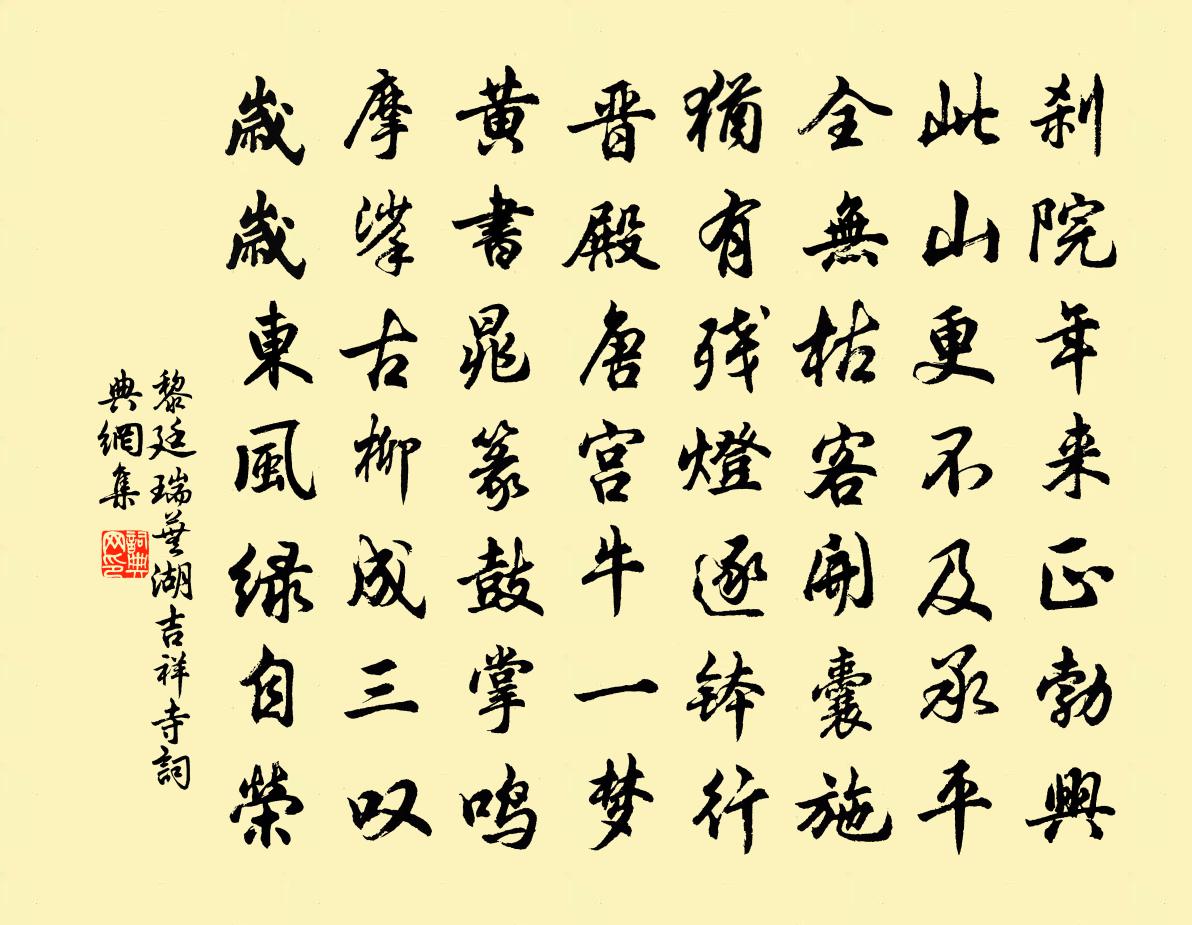 刹院年来正勃興
此山更不及承平
全無枯客開囊施
猶有残燈逐钵行
晋殿唐宫牛一梦
黄書晁篆鼓掌鸣
摩挲古柳成三叹
歲歲東風绿自榮
黎廷瑞蕪湖吉祥寺詞
典網集
詞典网印